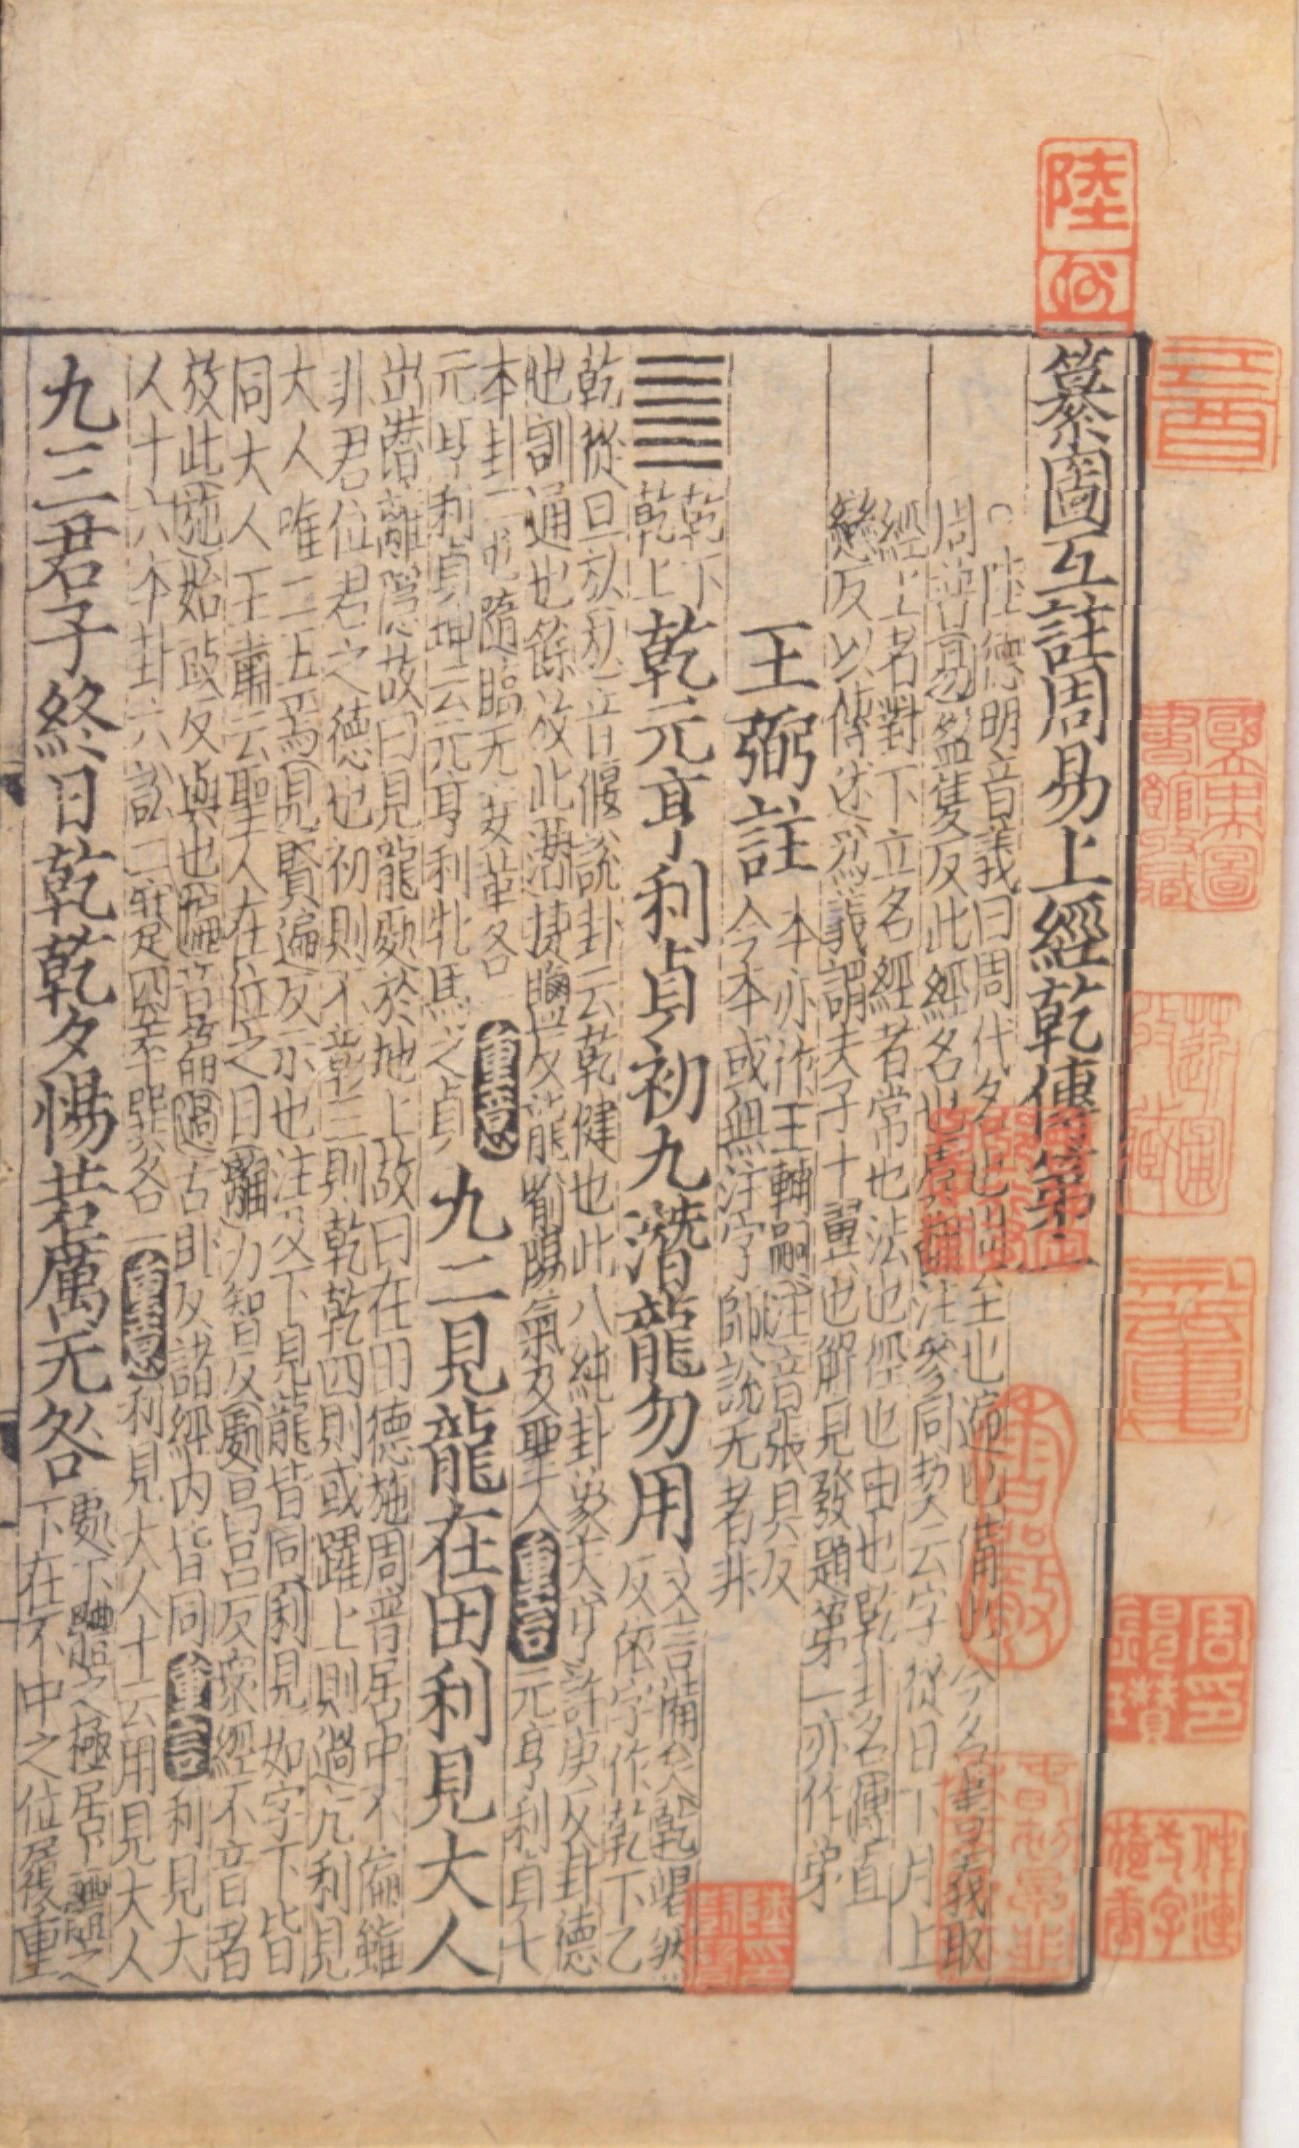 纂圖互註周易上經乾傳第一
陸德明音義曰周代名也周至也遍也備也今名書義取
周普易盈隻反此經名也虞翻注參同契云字從日下月上
經上者對下立名經者常也法也徑也由也乾卦名傳直
戀反以傳述爲義謂夫子十翼也解見發題第一亦作弟
王弼註
本亦作王輔嗣注音張具反
今本或無注字師說无者非
乾下
乾上
乾元亨利貞初九潛龍勿用
文言備矣乾竭然
反依字作乾下乙
乾從旦㫃㫃音偃說卦云乾健也此八純卦象天亨許庚反卦德
也訓通也餘放此潛捷鹽反龍喻陽氣及聖人重言元亨利貞七
本卦二屯隨臨无妄革各一重意
元亨利貞坤云元亨利牝馬之貞
九二見龍在田利見大人
出潛離隱故曰見龍處於地上故曰在田德施周普居中不偏雖
非君位君之德也初則不彰三則乾乾四則或躍上則過亢利見
大人唯二五焉見賢遍反示也注及下見龍皆同利見如字下皆
同大人王肅云聖人在位之目離力智反處昌呂反衆經不音者
放此施始豉反與也徧音遍過古臥反諸經內皆同重言利見大
人十六本卦六訟二蹇四萃巽各一重意利見大人十云用見大人
九三君子終日乾乾夕惕若厲无咎
處下體之極居上體之
下在不中之位履重